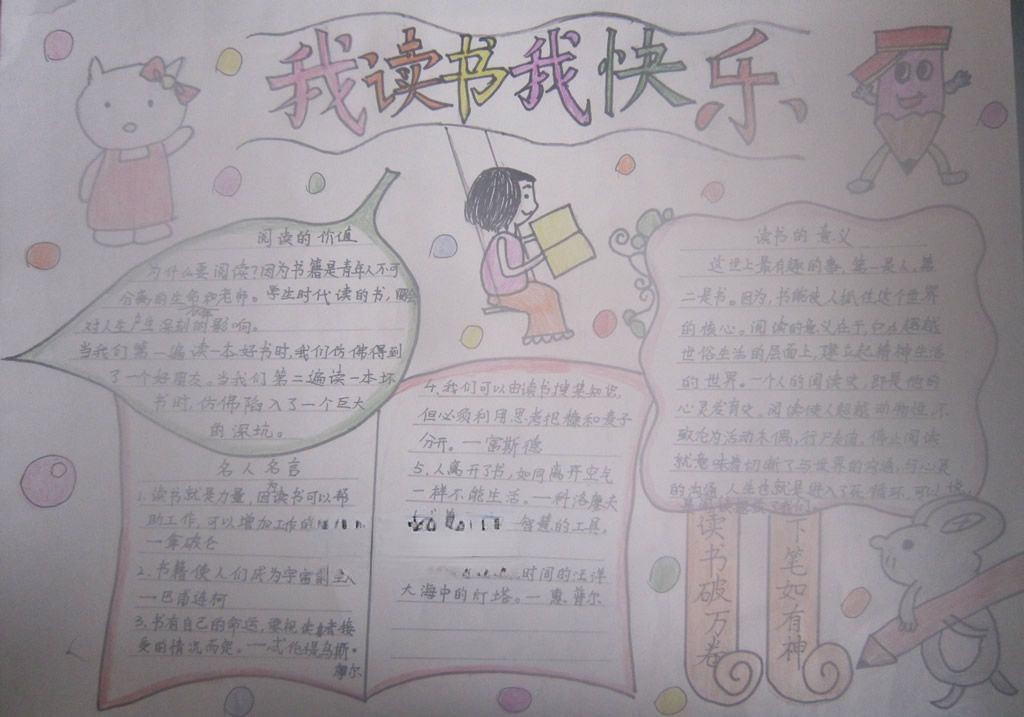 我读书我快乐
阅读的价值
为什么要阅读?因为书籍是青年人不可
分离的生命和老师。学生时代读的书,
对人生产生深刻的影响。
当我们第一遍读一本好书时,我们仿佛得到
了一个好朋友。当我们第二遍读一本坏
书时,仿佛陷入了一个巨大
的深坑。
名人名言
1.读书就是力量,因为读书可以帮
助工作,可以增加工作的
一弗破仑
2.书籍使人们成为宇宙
一巴甫连柯
3.书有自己的命运,要视读者接
受的情况而定。一忒伦提乌斯·
摩尔
4.我们可以由读书搜集知识,
但必须利用思考把糠和麦子
分开。一富斯德
5.人离开了书,如同离开空气
一样不能生活。一科洛廖夫
智慧的工具。
时间的汪洋
大海中的灯塔。一惠普尔
读书的意义
这世上最有趣的事,第一是人,第
二是书。因为,书能使人抓住这个世界
的核心。阅读的意义在于,它在超越
世俗生活的层面上,建立起精神生活
的世界。一个人的阅读史,即是他的
心灵发育史。阅读使人超越动物性,不
致沦为活动木偶,行尸走肉。停止阅读
就意味着切断了与世界的沟通,与心灵
的沟通,人生也就是进入了死循环,可以说
读书破万卷
下笔如有神